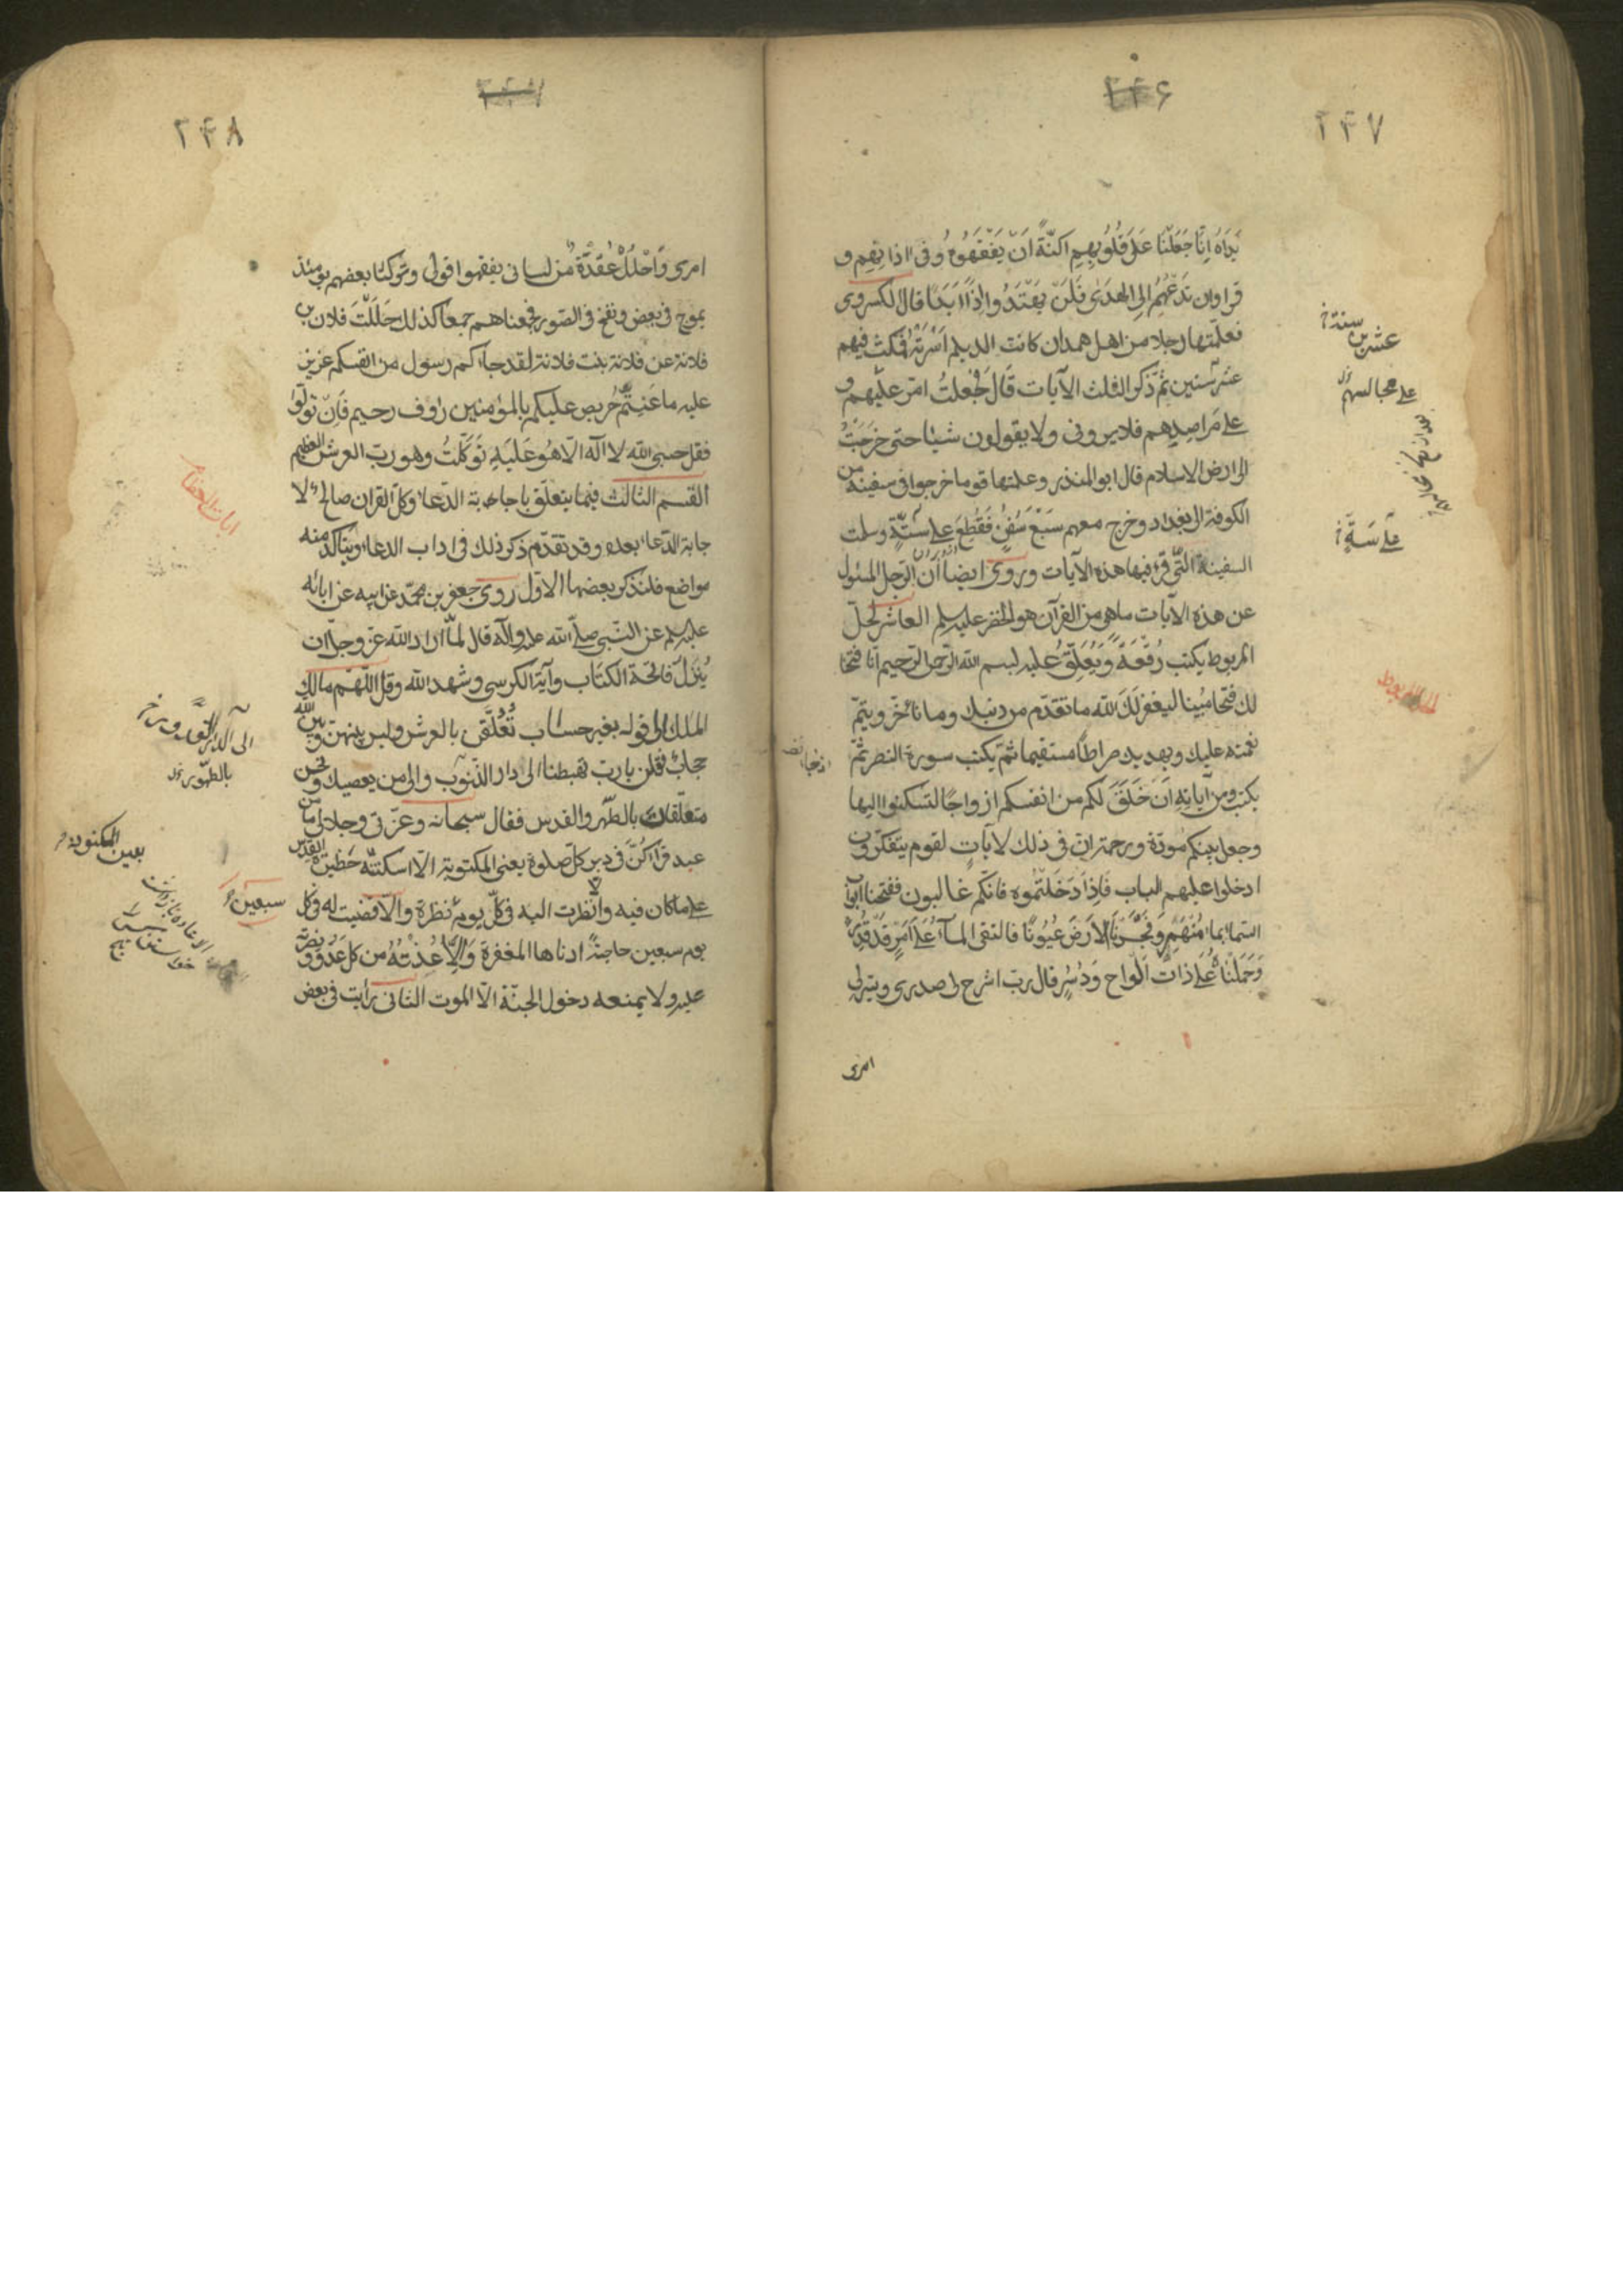 ۲۴۷
۲۴۶
يَدَاهُ اِنَّا جَعَلْنَا عَلَى قُلُوبِهِمْ اَكِنَّةً اَنْ يَفْقَهُوهُ وَفى اذانِهِم و
قرا وان تَدْعُهُمْ اِلى الهُدَى فَلَنْ يَهْتَدُوا اِذًا اَبَدًا قال الكسروى
فعلمتها رجلا من اهل همدان كانت الديلم اَسَرَتْهُ فمكث فيهم
عشر سنين ثم ذكر الثلث الآيات قَالَ فَجُعلتُ امرّ عليهم و
على مَراصِدِهم فلا يرونى ولا يقولون شيئا حتى خَرَجْتُ
الى ارض الاسلام قال ابو المنذر وعلمتها قوما خرجوا فى سفينة من
الكوفة الى بغداد وخرج معهم سَبْعَ سُفُنٍ فَقُطِعَ على سِتَّةٍ وسلمت
السفينة التّى قرء فيها هذه الآيات وروى ايضا اَنّ الرّجل المسئول
عن هذه الآيات ماهى من القرآن هو الخضر عليه السلم العاشر لحلّ
المربوط يكتب رُقْعَةً وَيُعَلِّقُ عليه بسم الله الرحمن الرحيم انا فتحنا
لك فتحا مبينا ليغفر لَكَ الله ما تقدّم من ذنبك وما تأخّر ويتمّ
نعمته عليك ويهديك صراطًا مستقيما ثمّ يكتب سورة النصر ثمّ
يكتب ومن آياتِهِ اَنْ خَلَقَ لكم من انفسكم ازواجًا لتسكنوا اليها
وجعل بينكم مودّة ورحمة ان فى ذلك لآياتٍ لقوم يتفكّرون
ادخلوا عليهم الباب فَاِذَا دَخَلْتُمُوه فانّكم غالبون ففتحنا ابواب
السّماء بماء مُنْهَمِرٍ وَفَجَّرْنَا الاَرْضَ عُيُونًا فالتقى المآءُ عَلَى اَمْرٍ قَدْ قُدِرَ
وَحَمَلْنَاهُ عَلَى ذاتِ اَلْواحٍ وَدُسُرٍ قال ربّ اشرح لى صدرى ويسّرلى
امرى
عشرين سنة
على مجالسهم
على سَتَةٍ
۲۴۸
۲۴۷
امرى وَاحْلُلْ عُقْدَةً مِنْ لسانى يفقهوا قولى وتركنا بعضهم يومئذ
يموج فى بعض ونفخ فى الصّور فجمعناهم جمعا كذلك حَلَلْتُ فلان بن
فلانة عن فلانة بنت فلانة لقد جاءكم رسول من انفسكم عزيز
عليه ما عَنِتُّمْ حريص عليكم بالمؤمنين رؤف رحيم فَاِنْ تولّوا
فقل حسبى الله لا اله الّا هو عَلَيْهِ تَوَكَّلْتُ وهو ربّ العرش العظيم
القسم الثالث فيما يتعلّق باجابة الدّعاء وكلّ القران صالح لا
جابة الدّعاء بعده وقد تقدّم ذكر ذلك فى اداب الدعاء ويتاكّد منه
مواضع فلنذكر بعضها الاوّل روى جعفر بن محمّد عن ابيه عن ابائه
عليهم السلم عن النّبى صلّى الله عليه وآله قال لمّا اراد الله عزّ وجلّ ان
يُنزلَ فاتحة الكتاب وآية الكرسى وشهد الله وقل اللّهمّ مالك
الملك الى قوله بغير حساب تُعَلَّقْنَ بالعرش وليس بينهنّ وبين الله
حجاب فقلن يارب تهبطنا الى دار الذّنوب والى من يعصيك ونحن
متعلّقات بالطّهر والقدس فقال سبحانه وعزّتى وجلالى ما من
عبد قرأكنّ فى دبر كلّ صلوة يعنى المكتوبة الّا اسكنته حظيرة القدس
على ماكان فيه والّا نظرت اليه فى كلّ يوم نظرة والّا قضيت له فى كل
يوم سبعين حاجةً ادناها المغفرة وَاِلّا عُذْتُهُ من كل عَدُوّ ونصرته
عليه ولا يمنعه دخول الجنّة الّا الموت الثانى رأيت فى بعض
بالطّهور
سبعين